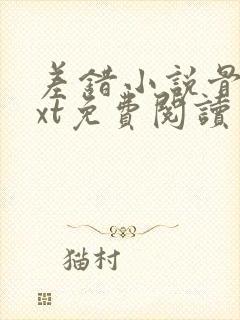 差錯小説骨
xt免費閱讀
猫村